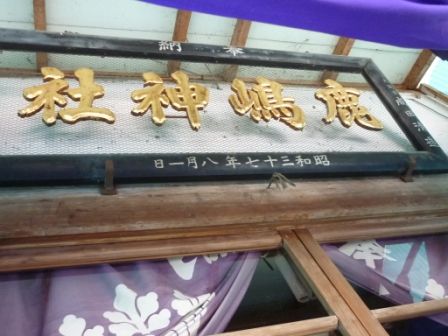 奉納
鹿嶋神社
昭和三十七年八月一日